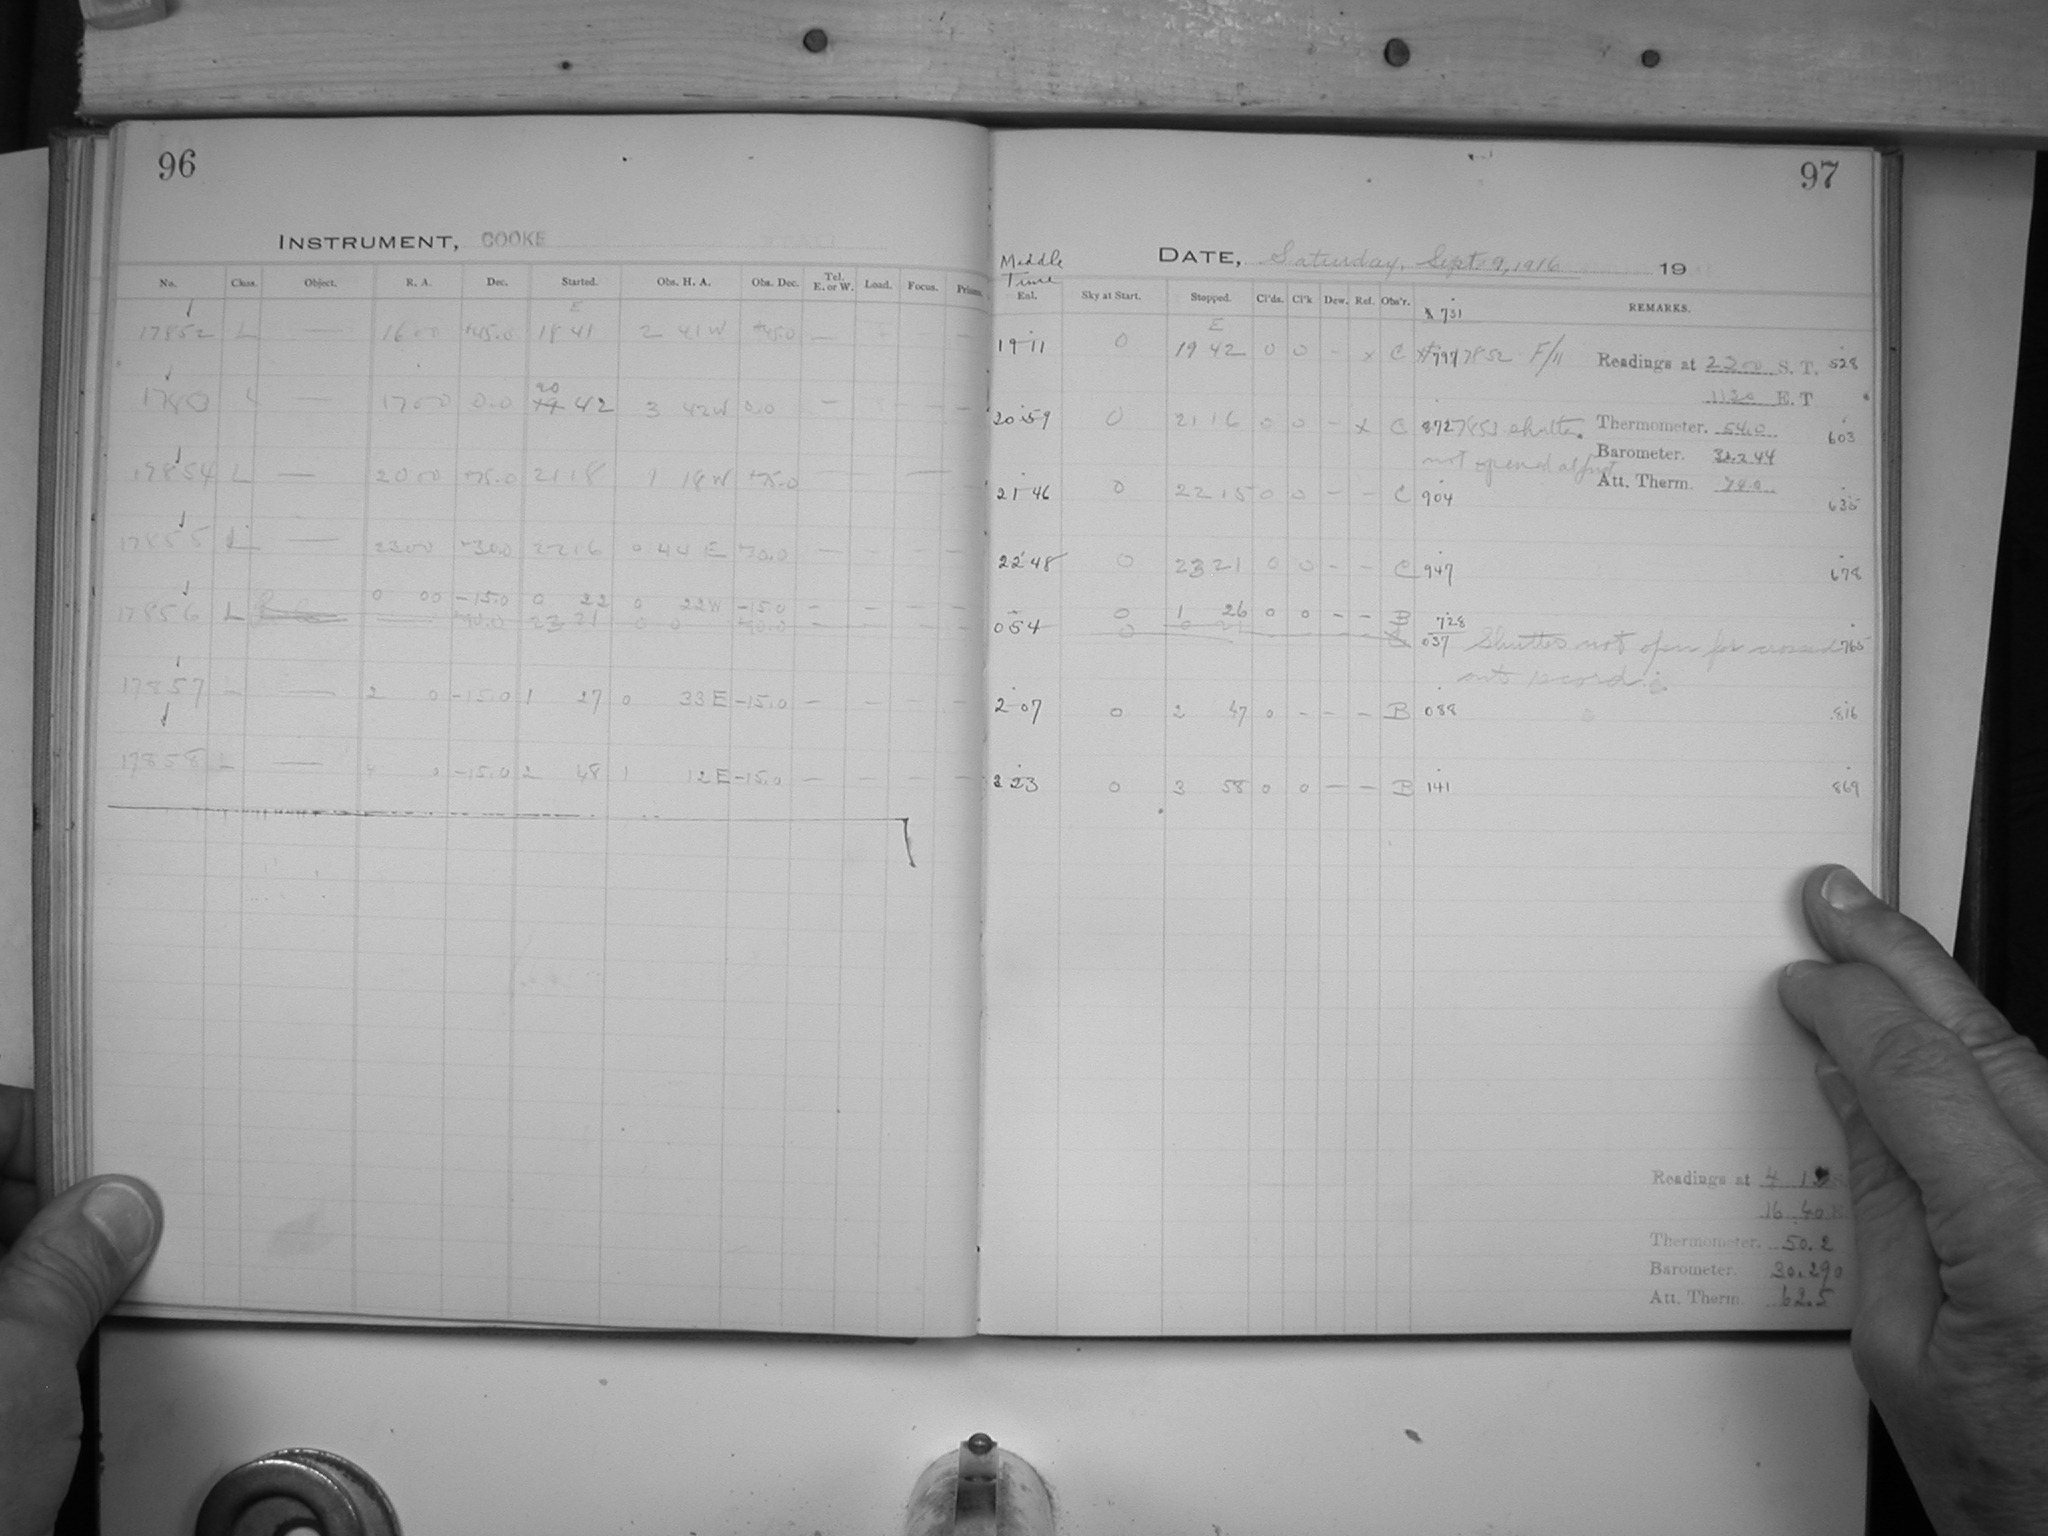 96
INSTRUMENT, COOKE
No. Class. Object. R. A. Dec. Started. Obs. H. A. Obs. Dec. Tel. E. or W. Load. Focus. Prisms.
E
17852 L — 16 00 +45.0 18 41 2 41 W +45.0 — —
20
17 00 0.0 19 42 3 42 W 0.0 — — —
17854 L — 20 00 +75.0 21 18 1 18 W +75.0 —
17855 L — 23 00 +30.0 22 16 0 44 E +30.0 — — — —
0 00 -15.0 0 22 0 22 W -15.0 — — — —
17856 L +90.0 23 21 0 0 +90.0 — — — —
17857 L — 2 0 -15.0 1 27 0 33 E -15.0 — — — —
17858 L — 4 0 -15.0 2 48 1 12 E -15.0 — — — —
97
Middle Time
DATE, Saturday, Sept. 9, 1916 19
Enl. Sky at Start. Stopped. Cl'ds. Cl'k Dew. Ref. Obs'r. REMARKS.
731
E
19 11 0 19 42 0 0 - x C 797 7852 F/11 528
Readings at 22 00 S. T.
1120 E. T
20 59 0 21 16 0 0 - x C 872 7853 shutter 603
not opened at first
Thermometer. 54.0
Barometer.
Att. Therm.
21 46 0 22 15 0 0 - - C 904 635
22 48 0 23 21 0 0 - - C 947 678
0 1 26 0 0 - - B 728
0 54 0 037 Shutter not open for crossed 765
out record.
2 07 0 2 47 0 - - - B 088 816
23 0 3 58 0 0 - - B 141 869
Readings at 4
16 40
Thermometer. 50.2
Barometer. 30.290
Att. Therm. 62.5